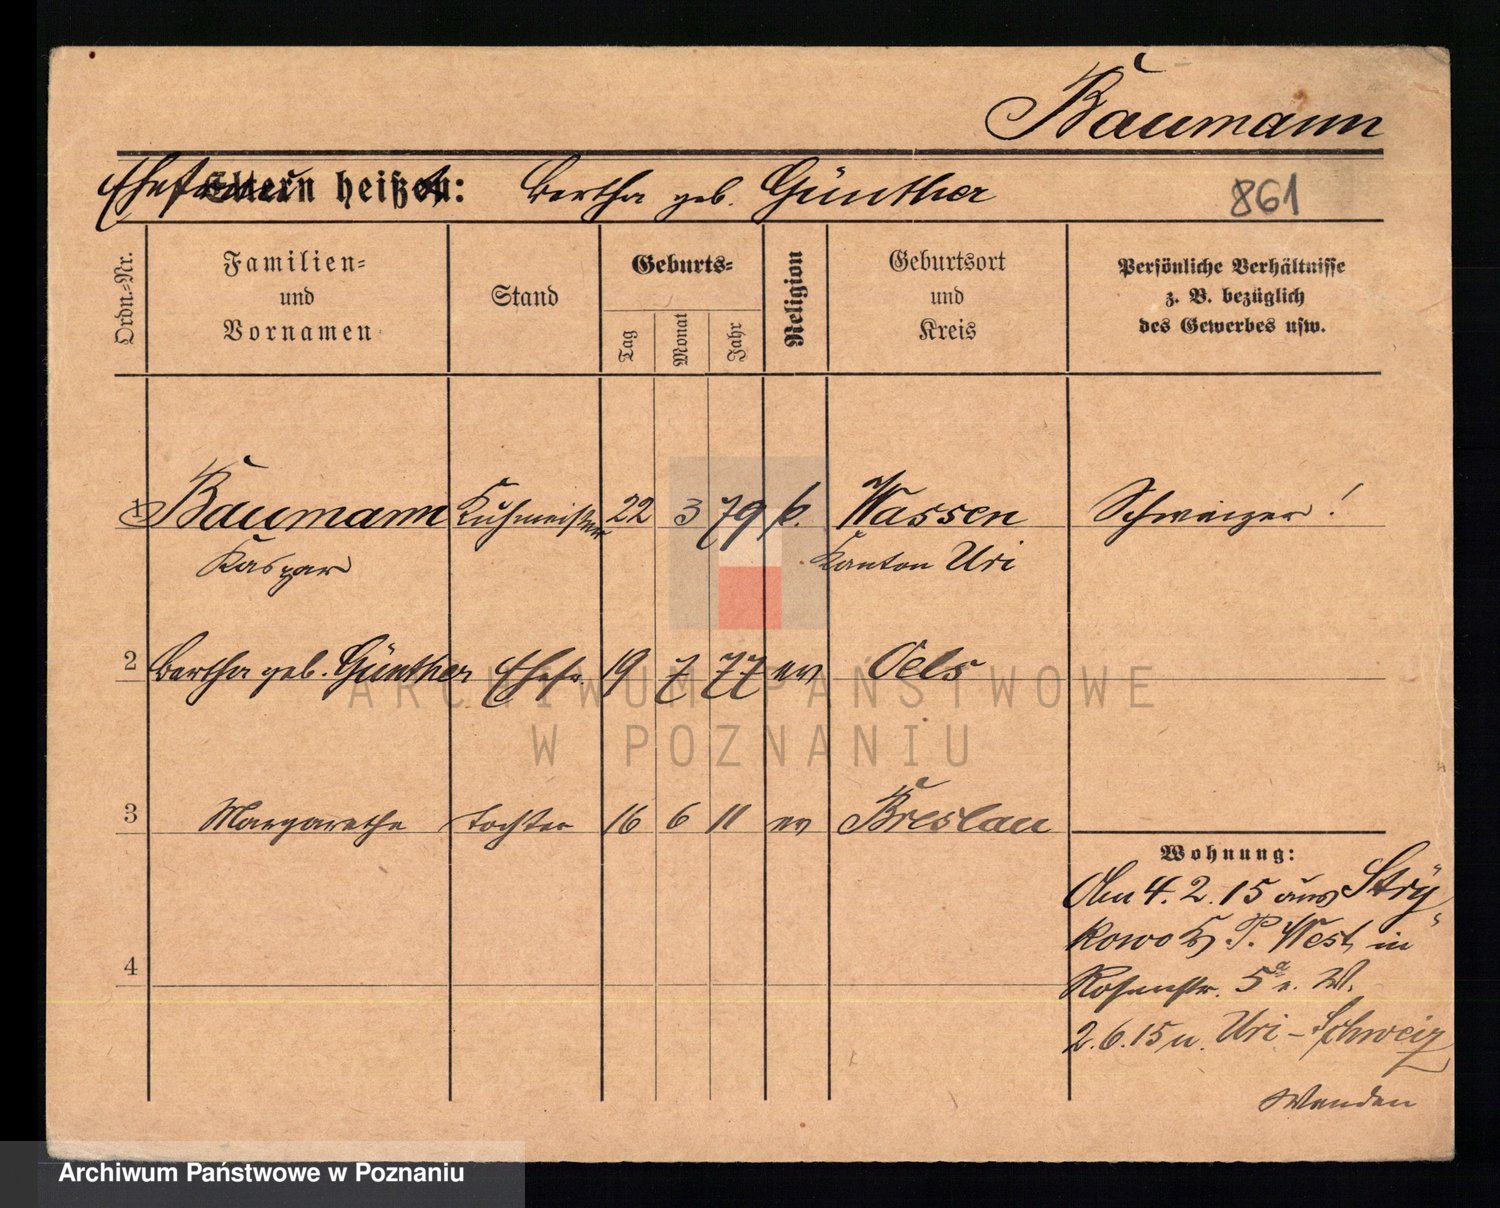 Baumann
Ehefrau heißt: Bertha geb. Günther
861
Ordn.-Nr.
Familien-
und
Vornamen
Stand
Geburts-
Tag
Monat
Jahr
Religion
Geburtsort
und
Kreis
Persönliche Verhältnisse
z. B. bezüglich
des Gewerbes usw.
1 Baumann Kuhmeister 22 3 79 k. Wassen Schweizer!
Kaspar Kanton Uri
2 Bertha geb. Günther Ehefr. 19 7 77 ev Oels
3 Margarethe Tochter 16 6 11 ev Breslau
4
Wohnung:
Am 4. 2. 15 aus Stry-
kowo P. West, in
Rosenstr. 5a
2. 6. 15 n. Uri - Schweiz
ARCHIWUM PAŃSTWOWE
W POZNANIU
Archiwum Państwowe w Poznaniu